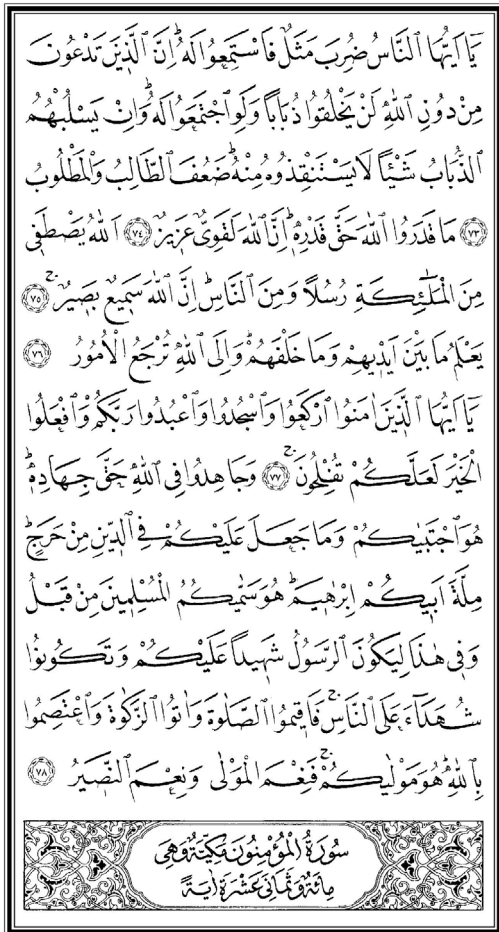 يَٓا اَيُّهَا النَّاسُ ضُرِبَ مَثَلٌ فَاسْتَمِعُوا لَهُۜ اِنَّ الَّذ۪ينَ تَدْعُونَ
مِنْ دُونِ اللّٰهِ لَنْ يَخْلُقُوا ذُبَاباً وَلَوِ اجْتَمَعُوا لَهُۜ وَاِنْ يَسْلُبْهُمُ
الذُّبَابُ شَيْـٔاً لَا يَسْتَنْقِذُوهُ مِنْهُۜ ضَعُفَ الطَّالِبُ وَالْمَطْلُوبُ
﴿٧٣﴾ مَا قَدَرُوا اللّٰهَ حَقَّ قَدْرِه۪ۜ اِنَّ اللّٰهَ لَقَوِيٌّ عَز۪يزٌ ﴿٧٤﴾ اَللّٰهُ يَصْطَف۪ي
مِنَ الْمَلٰٓئِكَةِ رُسُلاً وَمِنَ النَّاسِۜ اِنَّ اللّٰهَ سَم۪يعٌ بَص۪يرٌۚ ﴿٧٥﴾
يَعْلَمُ مَا بَيْنَ اَيْد۪يهِمْ وَمَا خَلْفَهُمْۜ وَاِلَى اللّٰهِ تُرْجَعُ الْاُمُورُ ﴿٧٦﴾
يَٓا اَيُّهَا الَّذ۪ينَ اٰمَنُوا ارْكَعُوا وَاسْجُدُوا وَاعْبُدُوا رَبَّكُمْ وَافْعَلُوا
الْخَيْرَ لَعَلَّكُمْ تُفْلِحُونَۚ ﴿٧٧﴾ وَجَاهِدُوا فِي اللّٰهِ حَقَّ جِهَادِه۪ۜ
هُوَ اجْتَبٰيكُمْ وَمَا جَعَلَ عَلَيْكُمْ فِي الدّ۪ينِ مِنْ حَرَجٍۜ
مِلَّةَ اَب۪يكُمْ اِبْرٰه۪يمَۜ هُوَ سَمّٰيكُمُ الْمُسْلِم۪ينَ مِنْ قَبْلُ
وَف۪ي هٰذَا لِيَكُونَ الرَّسُولُ شَه۪يداً عَلَيْكُمْ وَتَكُونُوا
شُهَدَٓاءَ عَلَى النَّاسِۚ فَاَق۪يمُوا الصَّلٰوةَ وَاٰتُوا الزَّكٰوةَ وَاعْتَصِمُوا
بِاللّٰهِۜ هُوَ مَوْلٰيكُمْۚ فَنِعْمَ الْمَوْلٰى وَنِعْمَ النَّص۪يرُ ﴿٧٨﴾
سُورَةُ الْمُؤْمِنُونَ مَكِّيَّةٌ وَهِيَ
مِائَةٌ وَثَمَانِيَ عَشْرَةَ اٰيَةً